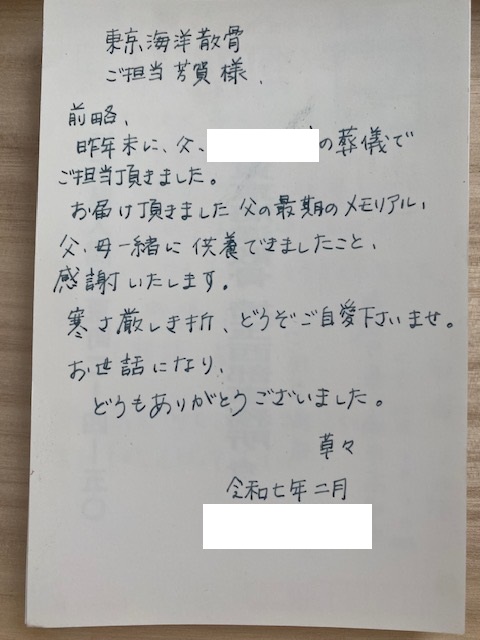 東京海洋散骨
ご担当 芳賀様、
前略、
昨年末に、父、の葬儀で
ご担当頂きました。
お届け頂きました父の最期のメモリアル、
父、母一緒に供養できましたこと、
感謝いたします。
寒さ厳しき折、どうぞご自愛下さいませ。
お世話になり、
どうもありがとうございました。
草々
令和七年二月